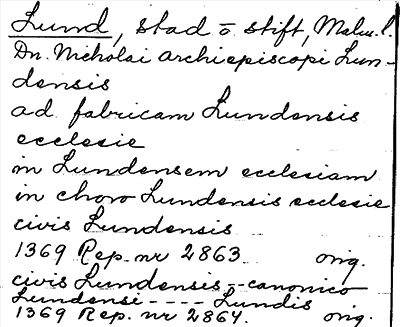 Lund, stad o stift, Malm. l.
Dn. Nicholai archiepiscopi Lun-
densis
ad fabricam Lundensis
ecclesie
in Lundensem ecclesiam
in choro Lundensis ecclesie
civis Lundensis
1369 Rep. nr 2863. orig.
civis Lundensis - - canonico
Lundensi - - - - Lundis
1369 Rep. nr 2864. orig.